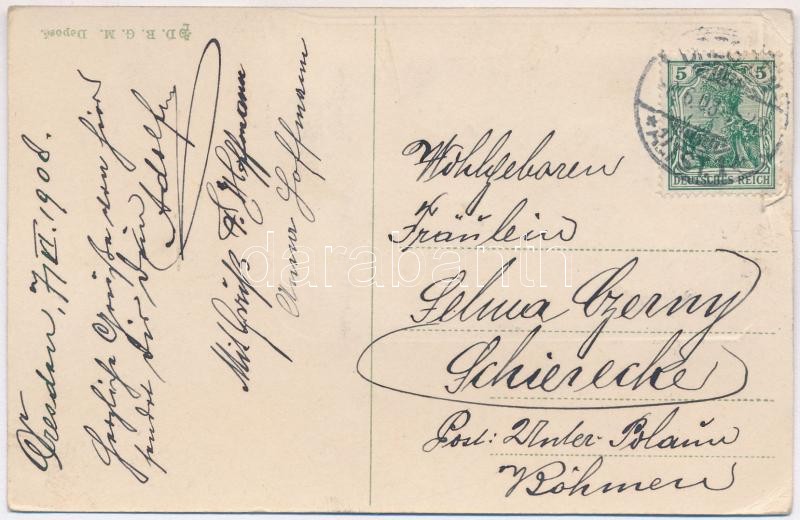 D. R. G. M. Depost.
Dresden, 7/VI. 1908.
Herzliche Grüße von hier
sendet dir dein
Adolf
Mit Gruß F. Hoffmann
Anna Hoffmann
5 5
DEUTSCHES REICH
Wohlgeboren
Fräulein
Selma Czerny
Schierecke
Post: Unter-Polaun
Böhmen
darabanth